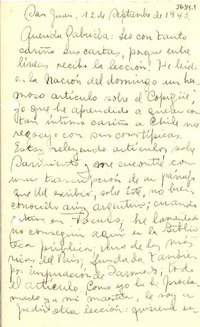 3634.1
San Juan, 12 de septiembre de 1943.
Querida Gabriela: leo con tanto
cariño sus cartas, porque entre
líneas recibo la lección. He leído
en La Nación del domingo un her-
moso artículo sobre el Copigüe;
yo que he aprendido a querer con
tan íntimo cariño a Chile me
regocijo con sus cosas típicas.
Estoy releyendo artículos sobre
Sarmiento, y me encontré con
una transcripción de un párrafo
que Ud. escribió, sobre éste, no bien
conocido aún argentino; cuando
He lamentado
no conseguir aquí en la Biblio-
teca pública, una de las más
ricas del País, fundada también
por inspiración de Sarmto., todo
el artículo. Como yo la he procla-
mado ya mi maestra, le voy a
pedir otra lección: quisiera